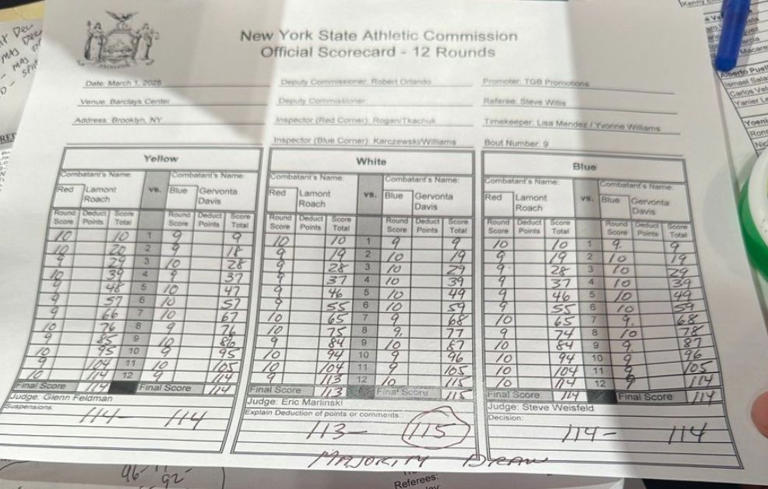 New York State Athletic Commission
Official Scorecard - 12 Rounds
Date: March 1, 2025 Deputy Commissioner: Robert Orlando Promoter: TGB Promotions
Venue: Barclays Center Deputy Commissioner: Referee: Steve Willis
Address: Brooklyn, NY Inspector (Red Corner): Rogan/Tkachuk Timekeeper: Lisa Mendez / Yvonne Williams
Inspector (Blue Corner): Karczewski/Williams Bout Number: 9
Yellow White Blue
Combatant's Name: Combatant's Name: Combatant's Name: Combatant's Name: Combatant's Name: Combatant's Name:
Red Lamont Roach vs. Blue Gervonta Davis Red Lamont Roach vs. Blue Gervonta Davis Red Lamont Roach vs. Blue Gervonta Davis
Round Score Deduct Points Score Total Round Score Deduct Points Score Total Round Score Deduct Points Score Total Round Score Deduct Points Score Total Round Score Deduct Points Score Total Round Score Deduct Points Score Total
10 10 1 9 9 10 10 1 9 9 10 10 1 9 9
10 20 2 9 18 9 19 2 10 19 9 19 2 10 19
9 29 3 10 28 9 28 3 10 29 9 28 3 10 29
10 39 4 9 37 9 37 4 10 39 9 37 4 10 39
9 48 5 10 47 9 46 5 10 49 9 46 5 10 49
9 57 6 10 57 9 55 6 10 59 9 55 6 10 59
9 66 7 10 67 10 65 7 9 68 10 65 7 9 68
10 76 8 9 76 10 75 8 9 77 9 74 8 10 78
9 85 9 10 86 9 84 9 10 87 10 84 9 9 87
10 95 10 9 95 10 94 10 9 96 10 94 10 9 96
9 104 11 10 105 10 104 11 9 105 10 104 11 9 105
10 114 12 9 114 9 113 12 10 115 10 114 12 9 114
Final Score 114 Final Score 114 Final Score 113 Final Score 115 Final Score 114 Final Score 114
Judge: Glenn Feldman Judge: Eric Marlinski Judge: Steve Weisfeld
Suspensions: Explain Deduction of points or comments: Decision:
114 - 114 113 - 115 114 - 114
MAJORITY DRAW
96- 92-
Referees: